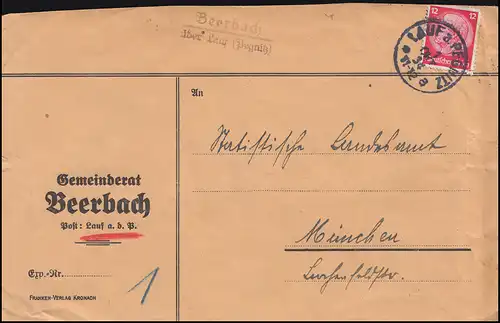 Beerbach
über Lauf (Pegnitz)
12 12
LAUF a. PEGNITZ
An
Statistische Landesamt
Gemeinderat
Beerbach
Post: Lauf a. d. P.
München
Exp.-Nr.
1
FRANKEN-VERLAG KRONACH